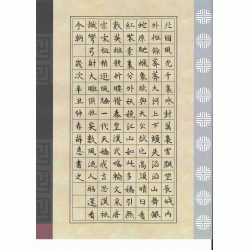 北國風光千里冰封萬里雪飄望長城内
外惟餘莽莽大河上下頓失滔滔山舞銀
蛇原馳蠟象欲與天公試比高須晴日看
紅裝素裹分外妖嬈江山如此多嬌引無
數英雄競折腰惜秦皇漢武略輸文采唐
宗宋祖稍遜風騷一代天驕成吉思汗祗
識彎弓射大雕俱往矣數風流人物還看
今朝 歲次辛丑仲春 書之